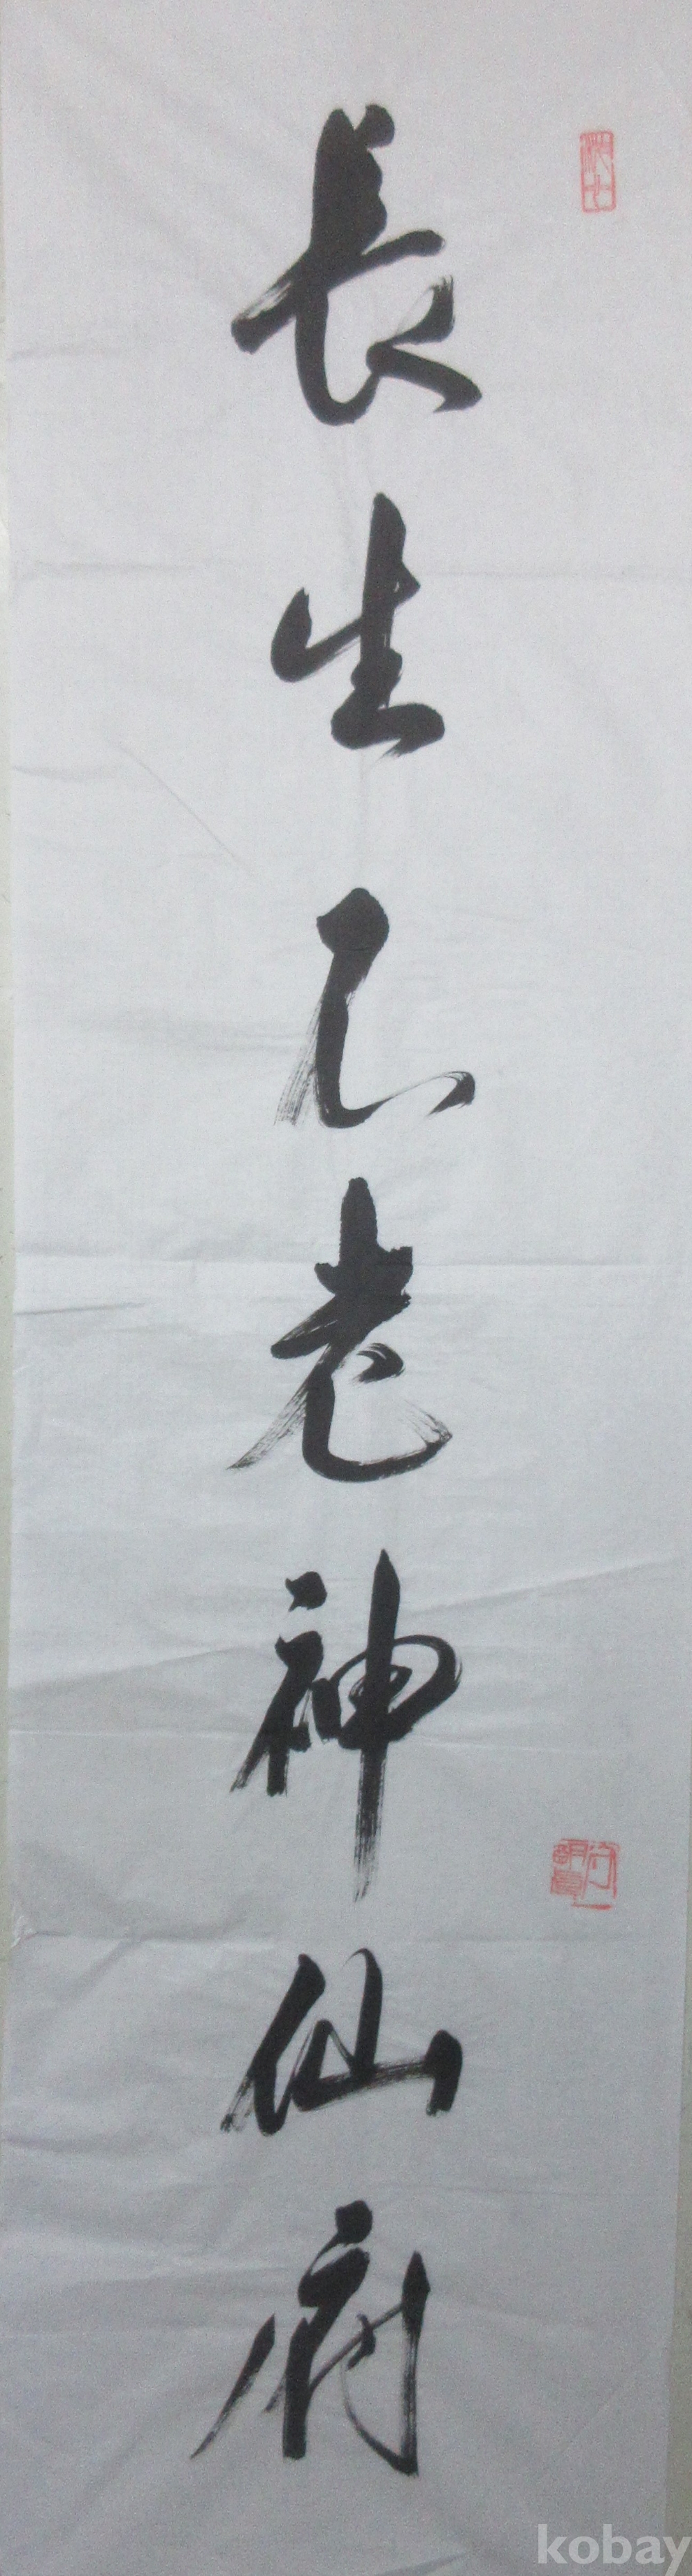 長生不老神仙府
kobay